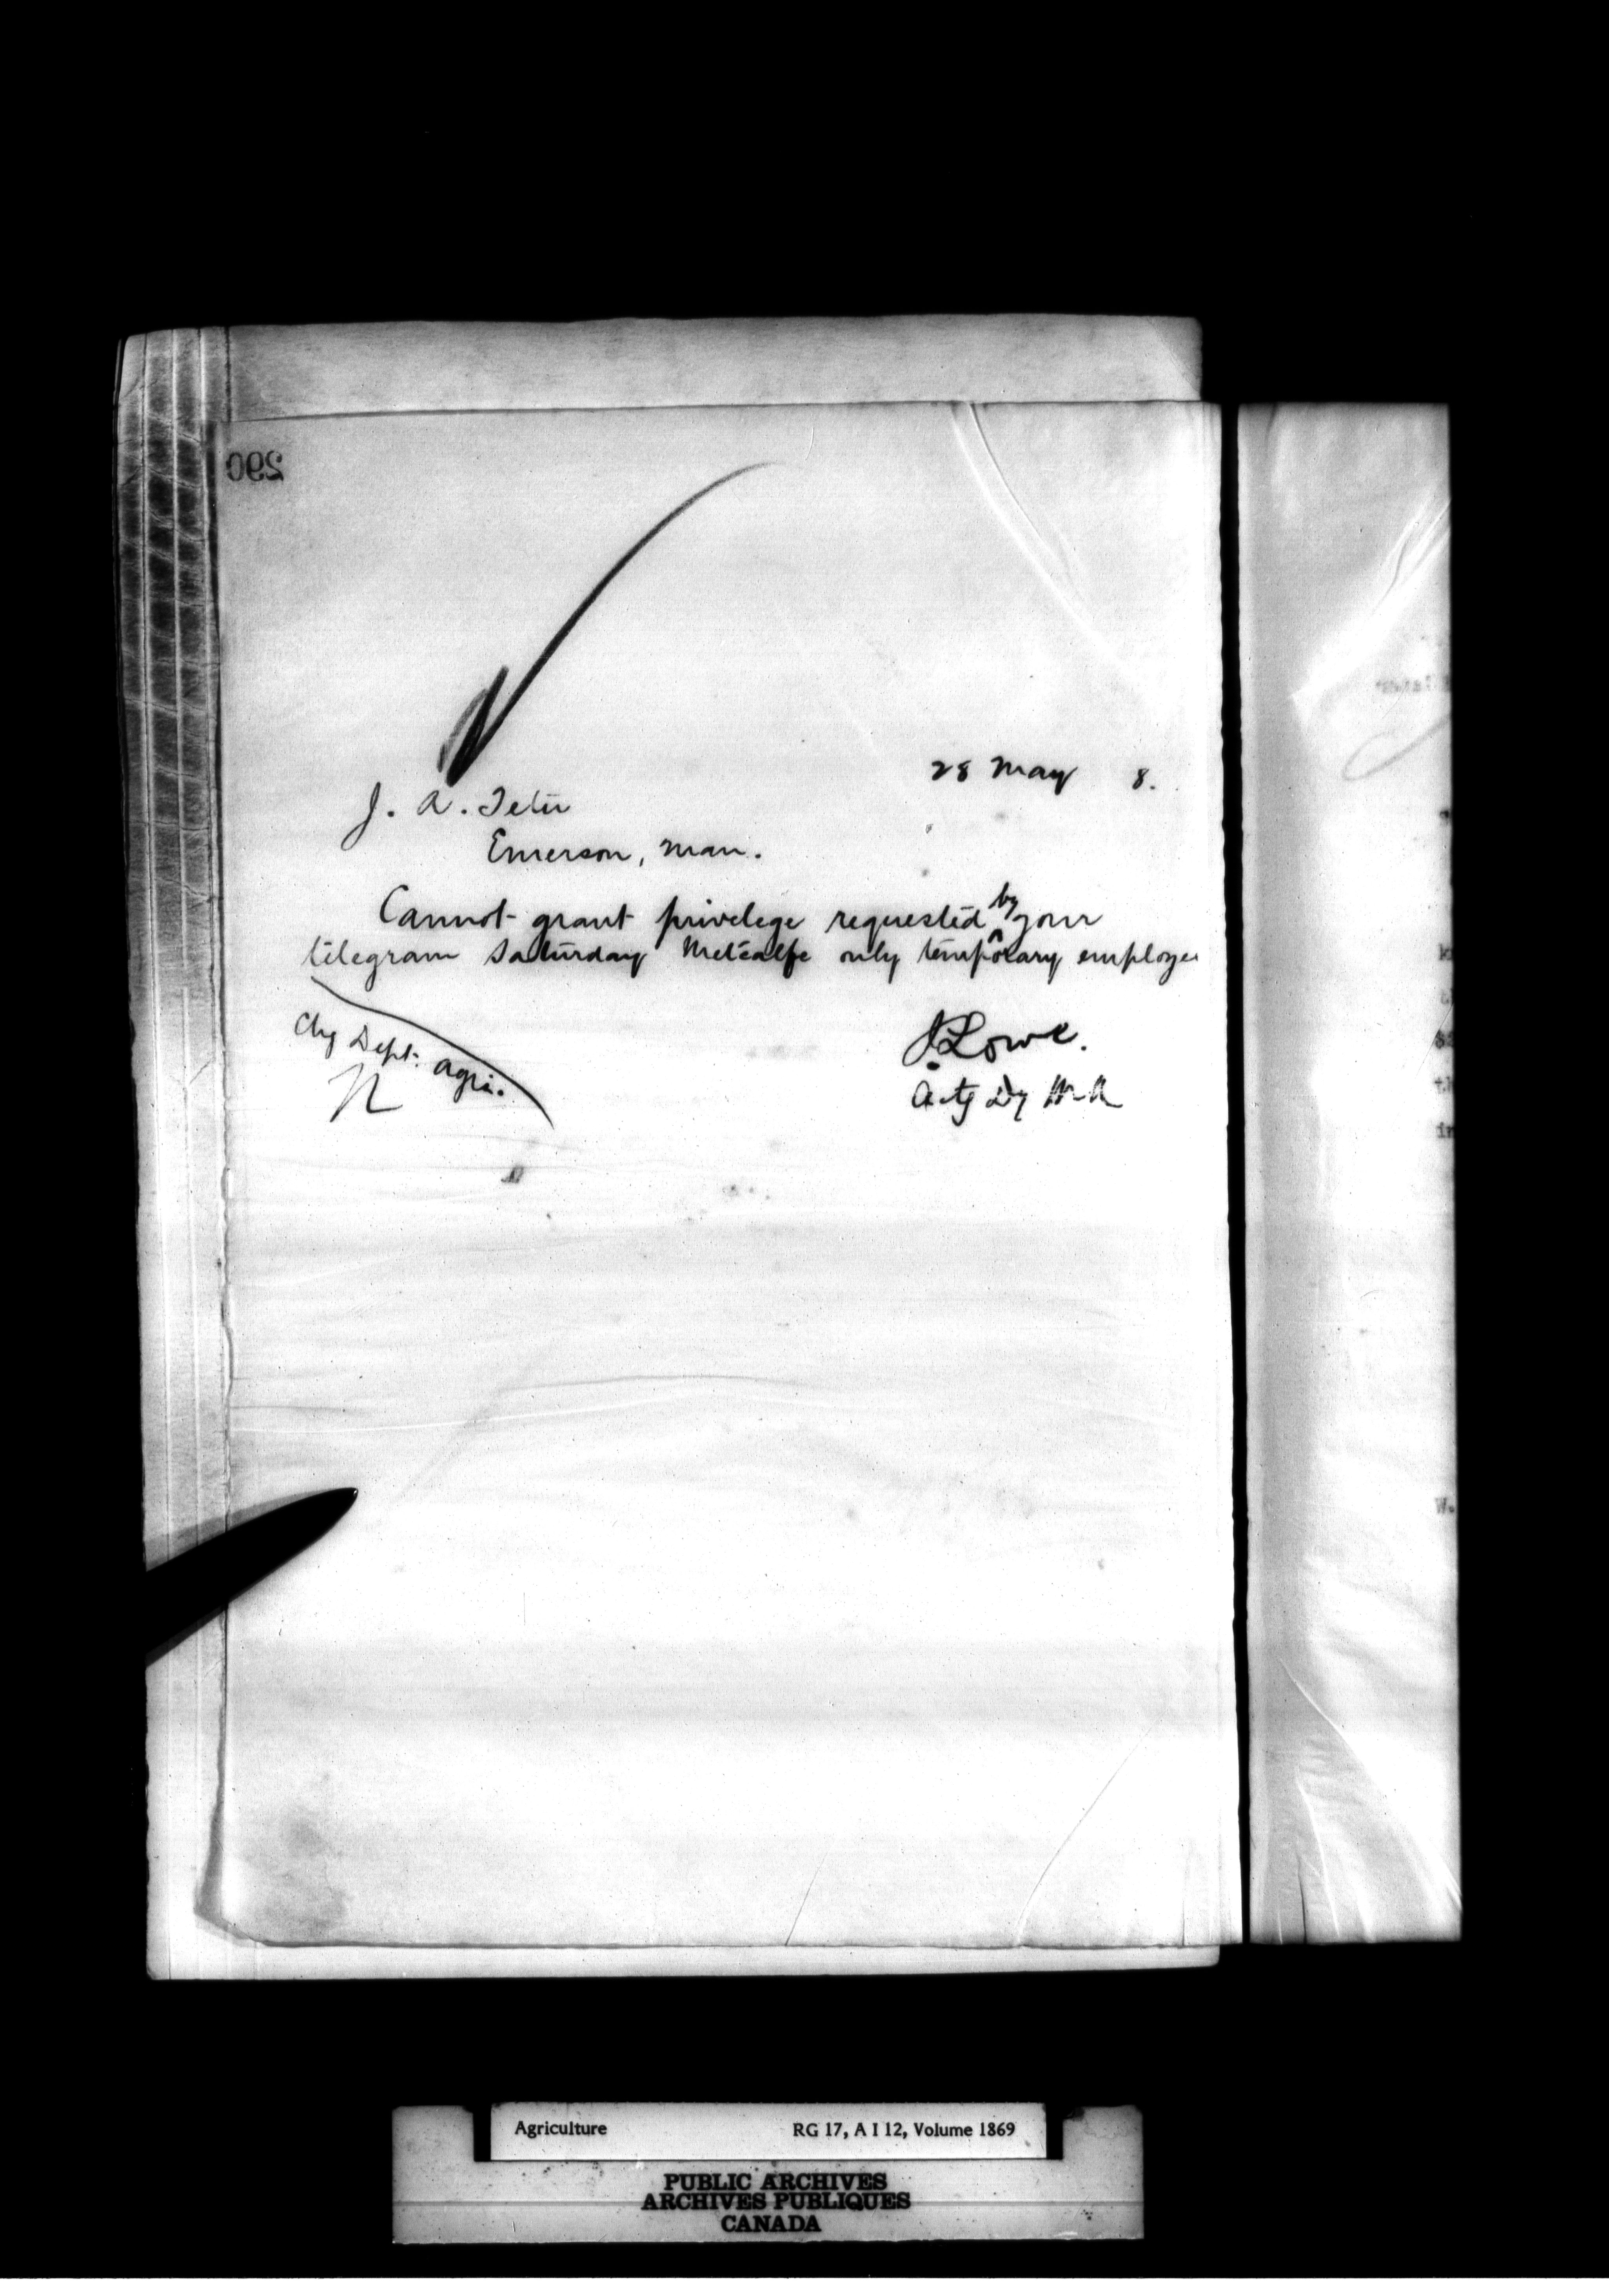 290
28 May 8.
J. A. Tetu
Emerson, Man.
Cannot grant privelege requested by your
telegram Saturday Metcalfe only temporary employee
Chg Dept. Agri.
J. Lowe.
Actg Dy
W.
Agriculture RG 17, A I 12, Volume 1869
PUBLIC ARCHIVES
ARCHIVES PUBLIQUES
CANADA